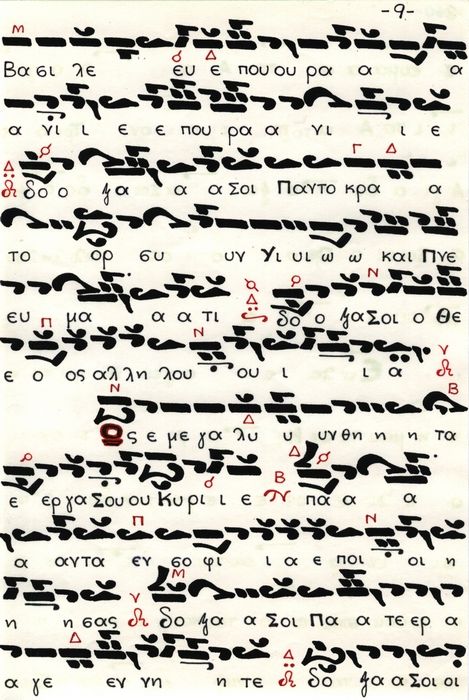 -9-
Βα σι λε ευ ε που ου ρα α α
α νι ι ε ε που ρα α νι ι ε
δο ο ξα α α Σοι Παντο κρα α
το ο ρ ευ υν Υι υι ω ω και Πνε
ευ μα α α τι δο ο ξα Σοι ο Θε
ε ο ος αλλη λου ου ι ι α
Ως ε με γα λυ υ υνθη η η τα
ε ερ γα Σου ου Κυ ρι ι ε πα α α
α αντα εν σο φι ι α ε ποι οι η
η η σας δο ξα α Σοι Πα α τε ερ α
α γε εν νη η τε δο ξα α Σοι οι